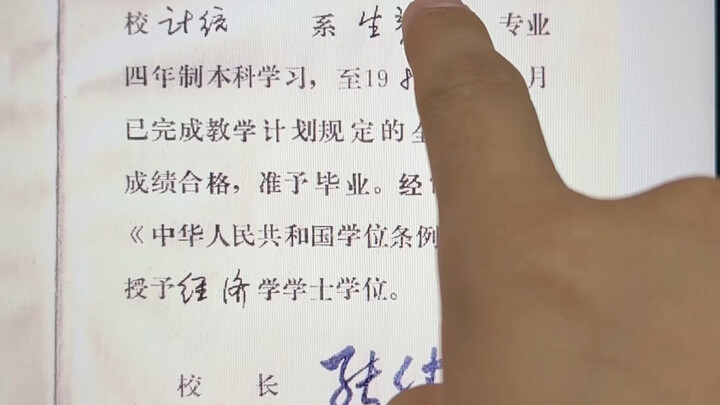 校 计统 系 生 专业
四年制本科学习，至19 月
已完成教学计划规定的
成绩合格，准予毕业。经
《中华人民共和国学位条例
授予经济学学士学位。
校 长